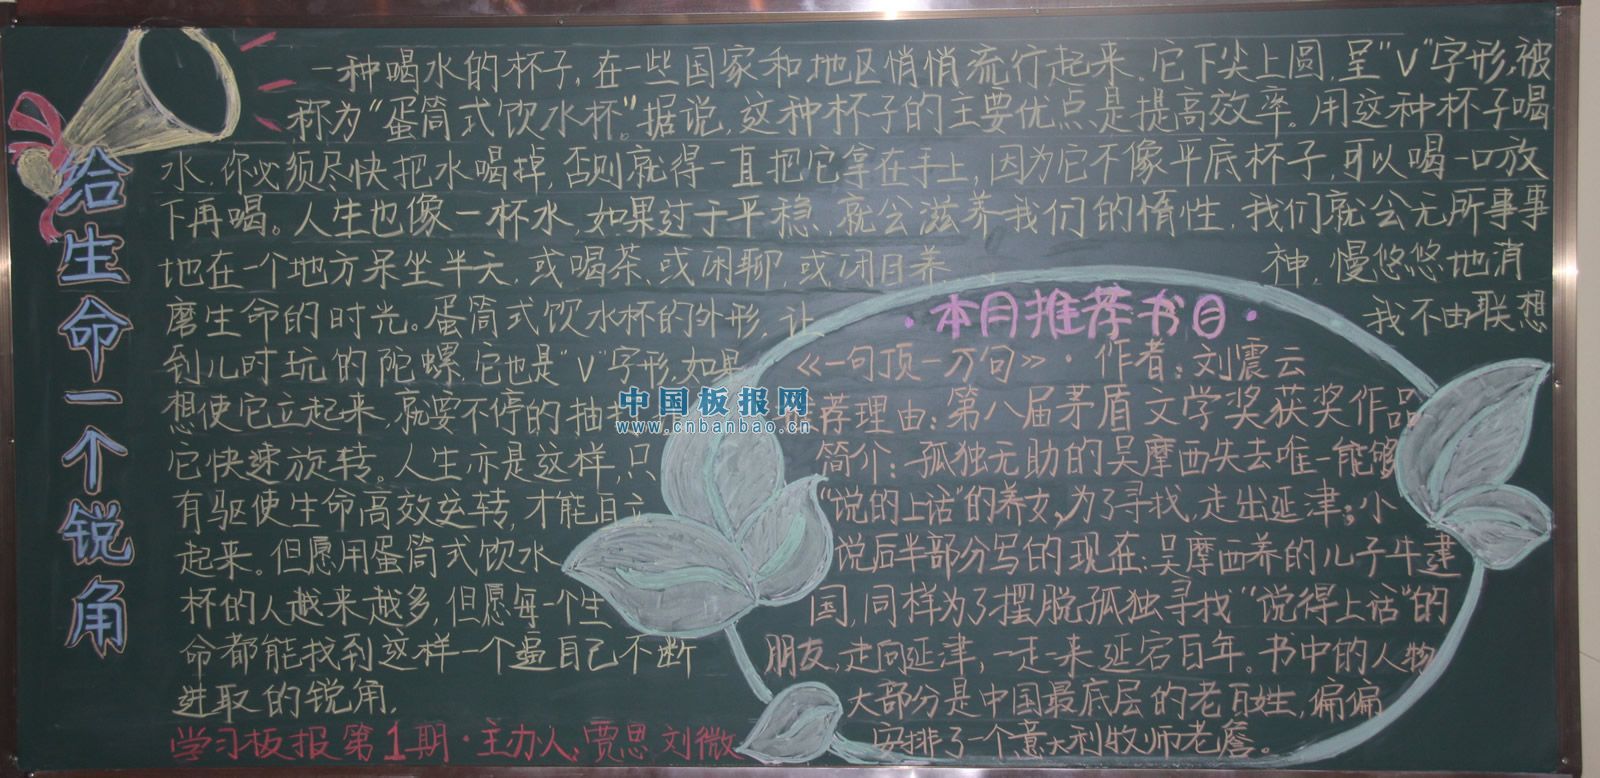 给生命一个锐角
一种喝水的杯子,在一些国家和地区悄悄流行起来。它下尖上圆,呈"V"字形,被
称为"蛋筒式饮水杯"。据说,这种杯子的主要优点是提高效率。用这种杯子喝
水,你必须尽快把水喝掉,否则就得一直把它拿在手上,因为它不像平底杯子,可以喝一口放
下再喝。人生也像一杯水,如果过于平稳,就会滋养我们的惰性,我们就会无所事事
地在一个地方呆坐半天,或喝茶,或闲聊,或闭目养神,慢悠悠地消
磨生命的时光。蛋筒式饮水杯的外形,让我不由联想
到儿时玩的陀螺,它也是"V"字形,如果
想使它立起来,就要不停的抽
它快速旋转。人生亦是这样,只
有驱使生命高效运转,才能自立
起来。但愿用蛋筒式饮水
杯的人越来越多,但愿每一个生
命都能找到这样一个逼自己不断
进取的锐角.
学习板报第1期·主办人:贾思 刘微
·本月推荐书目·
《一句顶一万句》·作者:刘震云
荐理由:第八届茅盾文学奖获奖作品
简介:孤独无助的吴摩西失去唯一能够
"说的上话"的养女,为了寻找,走出延津;小
说后半部分写的现在:吴摩西养的儿子牛建
国,同样为了摆脱孤独寻找"说得上话"的
朋友,走向延津,一走一来延宕百年。书中的人物
大部分是中国最底层的老百姓,偏偏
安排了一个意大利牧师老詹。
中国板报网
www.cnbanbao.cn